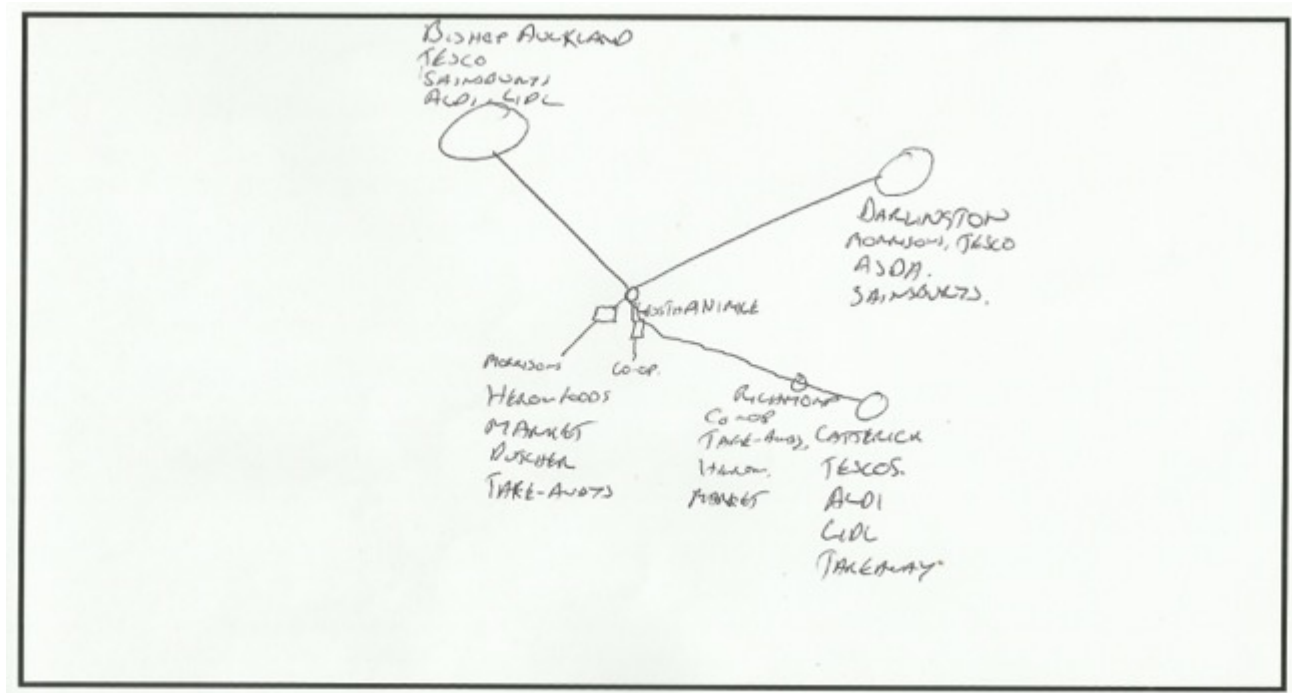 BISHOP AUCKLAND
TESCO
SAINSBURYS
ALDI LIDL
DARLINGTON
MORRISONS, TESCO
ASDA.
SAINSBURYS.
MORRISONS
HERON FOODS
MARKET
BUTCHER
TAKE-AWAYS
CO-OP.
RICHMOND
CO-OP
TAKE-AWAY,
HERON.
MARKET
CATTERICK
TESCOS.
ALDI
LIDL
TAKEAWAY